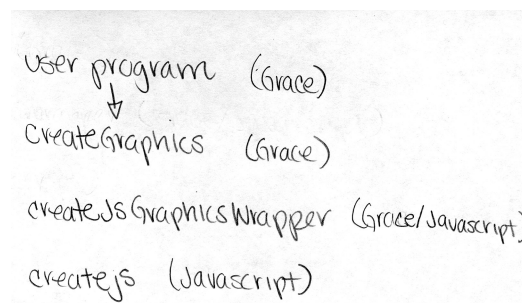 user program (Grace)
↓
createGraphics (Grace)
createJsGraphicsWrapper (Grace/Javascript)
createjs (Javascript)